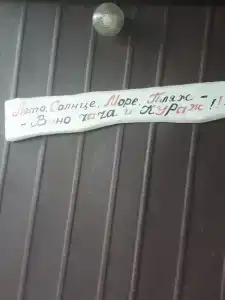 Лето, Солнце, Море, Пляж -
- Вино чача и КУРаж!!